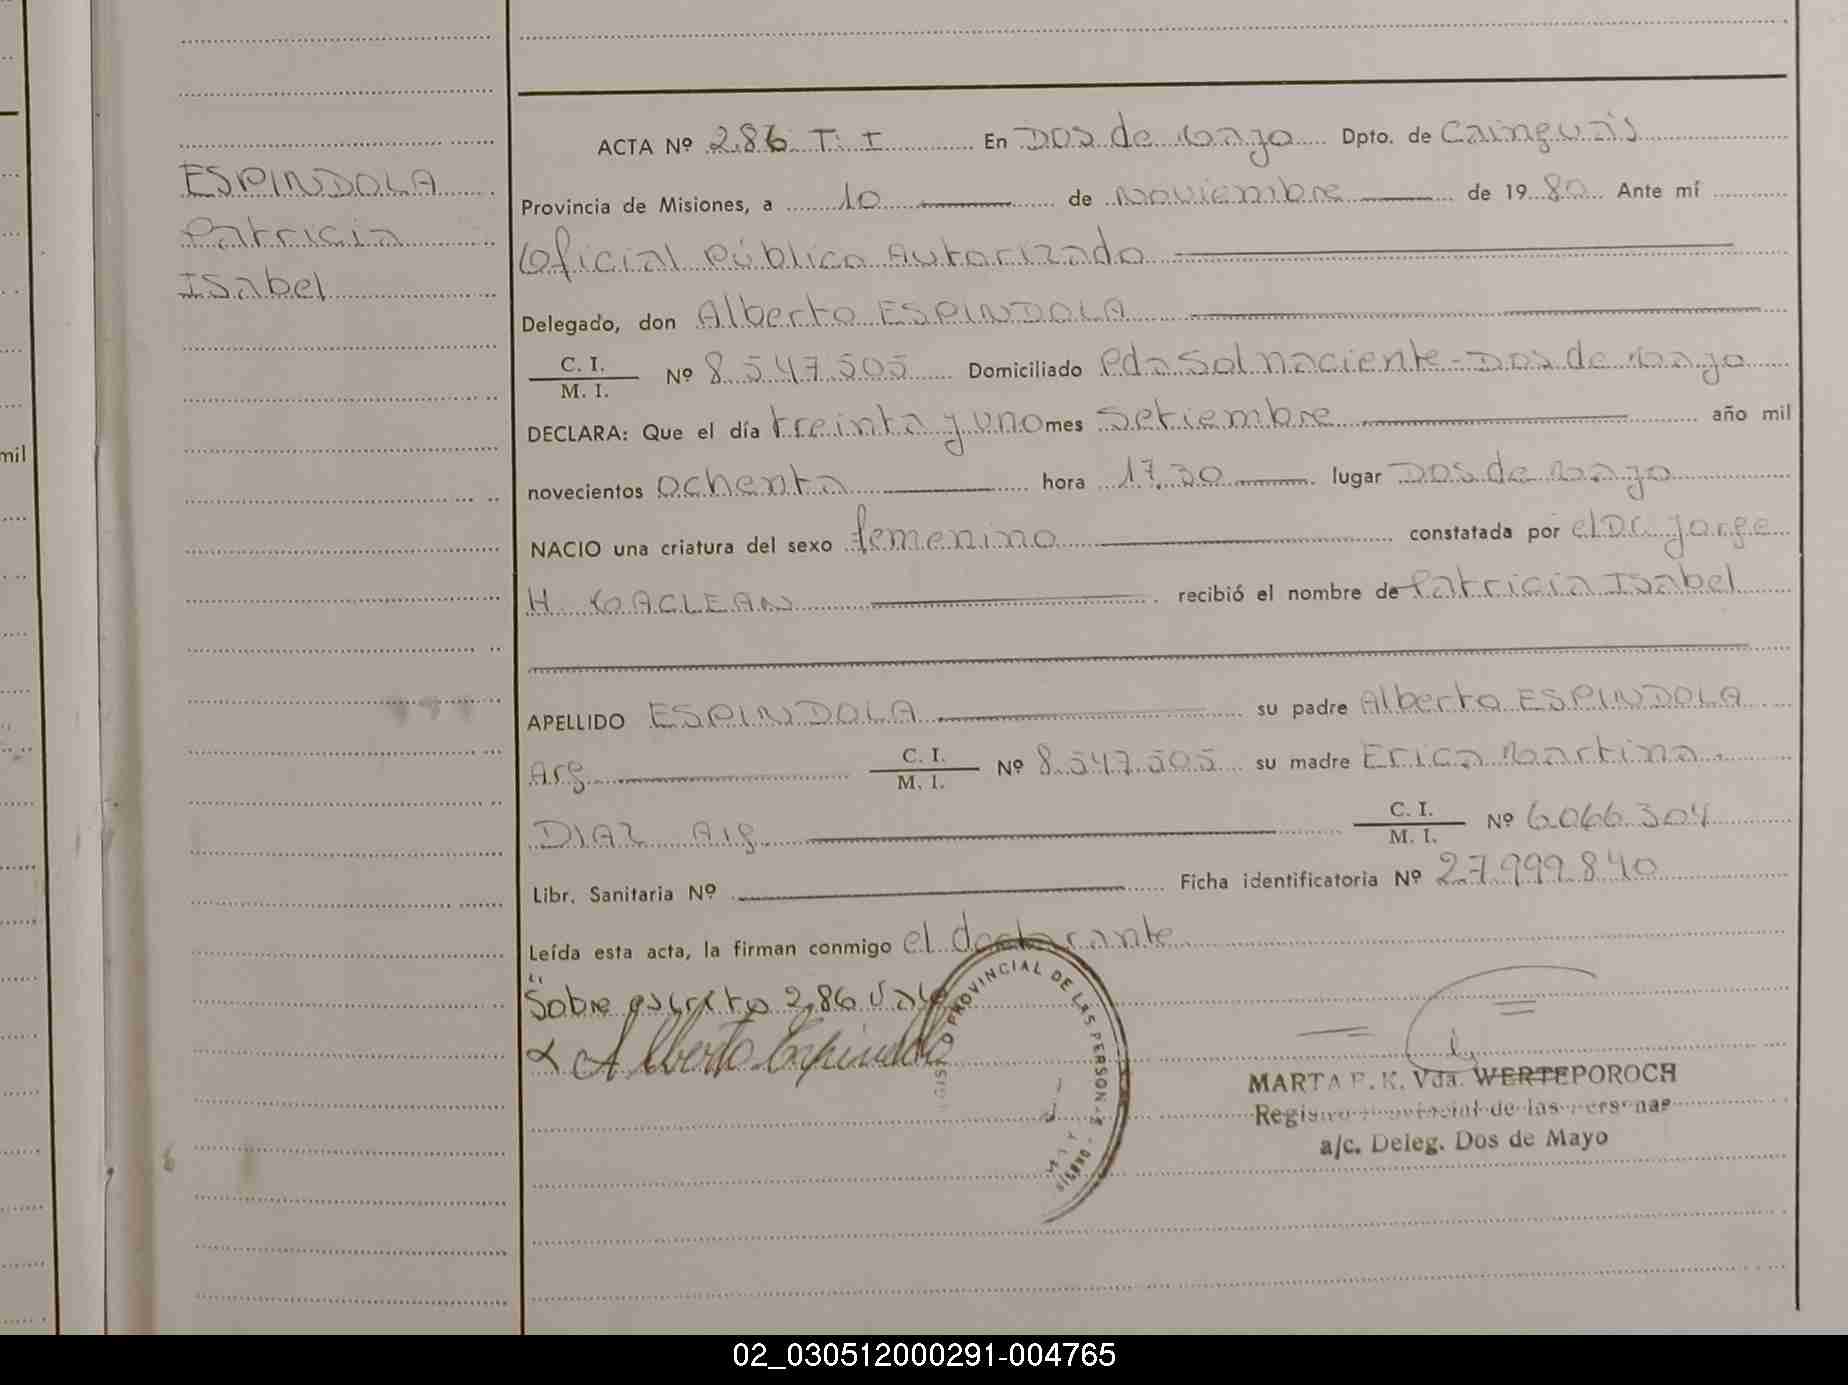 ESPINDOLA
Patricia
Isabel
mil
ACTA Nº 286 T: I En Dos de Mayo Dpto. de Cainguás
Provincia de Misiones, a 10 de Noviembre de 1980 Ante mí
Oficial Público Autorizado
Delegado, don Alberto ESPINDOLA
C. I.
M. I. Nº 8.547.505 Domiciliado Pda Sol Naciente - Dos de Mayo
DECLARA: Que el día treinta y uno mes Setiembre año mil
novecientos ochenta hora 17,30 lugar Dos de Mayo
NACIO una criatura del sexo femenino constatada por el Dr. Jorge
H MACLEAN recibió el nombre de Patricia Isabel
APELLIDO ESPINDOLA su padre Alberto ESPINDOLA
Arg C. I.
M. I. Nº 8.547.505 su madre Erica Martina
DIAZ Arg C. I.
M. I. Nº 6.066.304
Libr. Sanitaria Nº Ficha identificatoria Nº 27.999.840
Leída esta acta, la firman conmigo el declarante
Sobre escrito 286 Vale
Alberto Espindola
PROVINCIAL DE LAS PERSONAS
MARTA P. K. Vda. WERTEPOROCH
Registro Provincial de las Personas
a/c. Deleg. Dos de Mayo
02_030512000291-004765